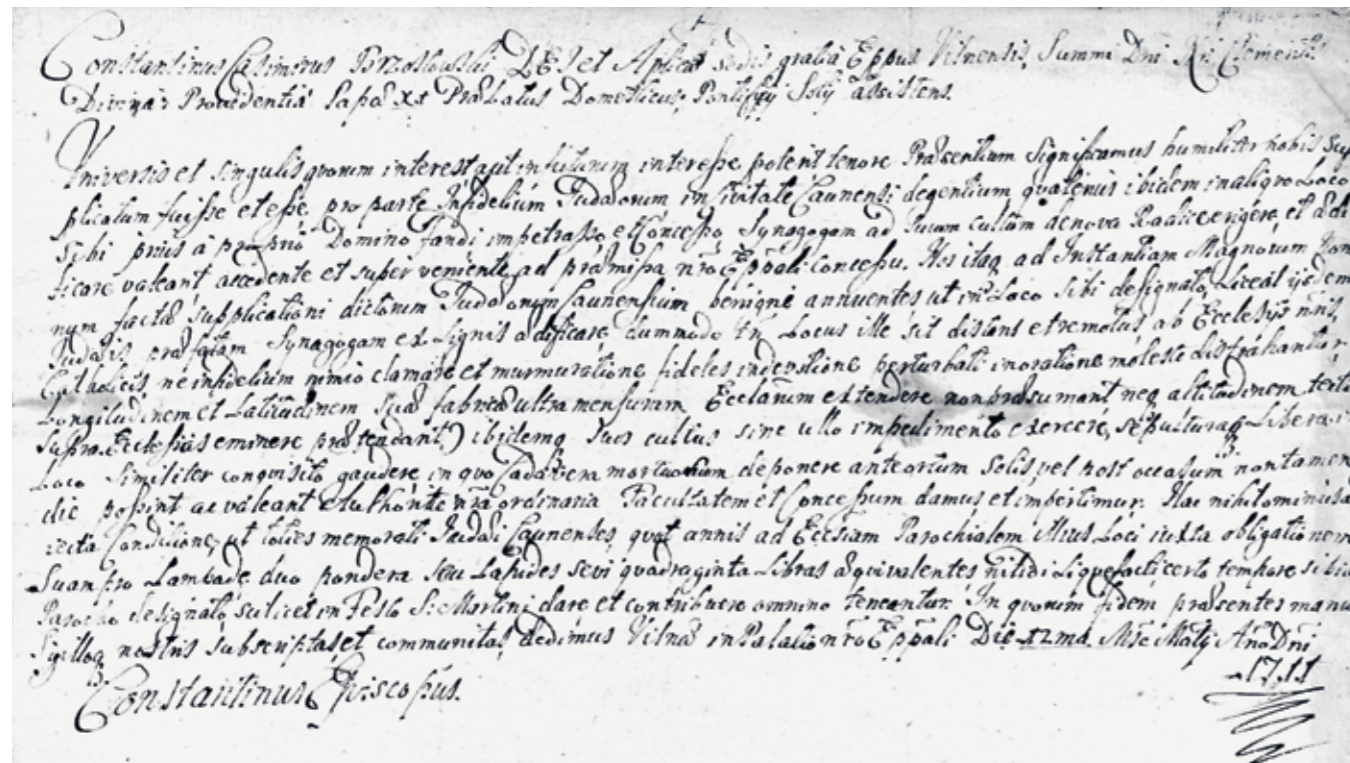 Constantinus Casimirus Brzostowski D E J et Aplicæ Sedis gratia Eppus Vilnensis, Summi Dni Xri Clementis
Divinâ Providentiâ Papæ XI Prælatus Domesticus, Pontificij Solij assistens.
Universis et singulis quorum interest aut in futurum interesse poterit tenore Præsentium significamus humiliter nobis sup
plicatum fuisse et esse, pro parte Infidelium Judæorum in Civitate Caunensi degentium, quatenus ibidem in aliqvo Loco
sibi prius à proprio Domino fundi impetrasso et Concesso, Synagogam ad suum cultum de nova Radice erigere, et ædi
ficare valeant accedente et super veniente, ad præmissa nro Eppali Concessu. Nos itaq ad Instantiam Magnorum
nym factâ supplicationi dictorum Judæorum Caunensium benignè annuentes ut in Loco sibi designato, Liceat ijsdem
Judæis præfatam Synagogam ex Lignis ædificare, dummodo tn Locus ille sit distans et remotus ab Ecclesijs nris,
Catholicis ne infidelium nimio clamore et murmuratione fideles in devotione perturbati in oratione moleste distrahantur
Longitudinem et Latitudinem suæ fabricæ ultra mensuram Ecclarum extendere non præsumant neq altitudinem
supra Ecclesias eminere prætendant) ibidemq suos cultus sine ullo impedimento exercere, sepulturaq Libera
Loco similiter conquisito gaudere, in quo Cadavera mortuorum deponere ante ortum Solis, vel post occasum non tamen
die possint ac valeant Authorite nra ordinaria Facultatem et Concessum damus, et impertimur. Hac nihilominus
recta Conditione, ut toties memorati Judæi Caunenses, quot annis ad Ecclsiam Parochialem illius Loci iuxta obligationem
suam pro Lampade, duo pondera seu Lapides sevi quadraginta Libras æquivalentes nitidi Liquefacti certo tempore sibi
Parocho designato, scilicet in Festo S: Martini, dare et contribuere omnino teneantur. In quorum fidem præsentes manu
Sigilloq nostris subscriptas, et communitas dedimus Vilnæ in Palatio nro Eppali Die 12ma Mse Maij Ano Dni
1711
Constantinus Episcopus.